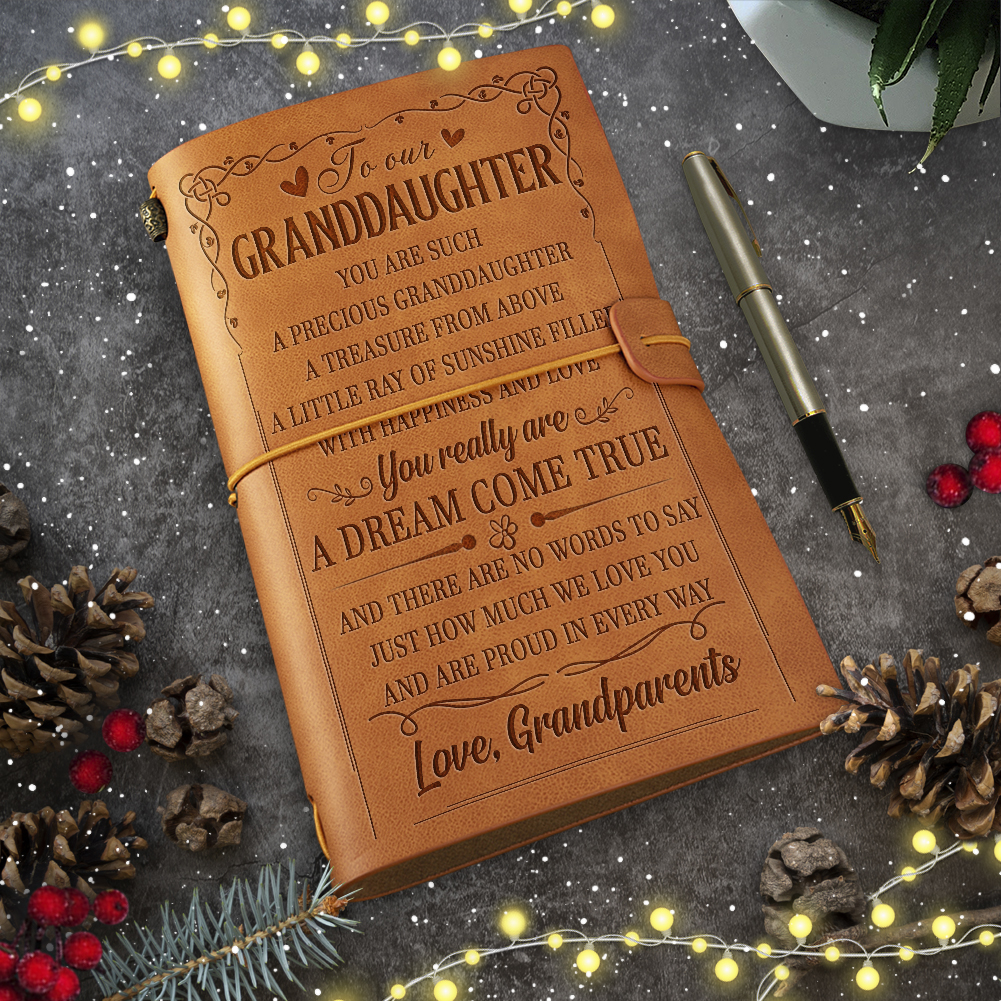 To our
GRANDDAUGHTER
YOU ARE SUCH
A PRECIOUS GRANDDAUGHTER
A TREASURE FROM ABOVE
A LITTLE RAY OF SUNSHINE FILLE
WITH HAPPINESS AND LOVE
You really are
A DREAM COME TRUE
AND THERE ARE NO WORDS TO SAY
JUST HOW MUCH WE LOVE YOU
AND ARE PROUD IN EVERY WAY
Love, Grandparents